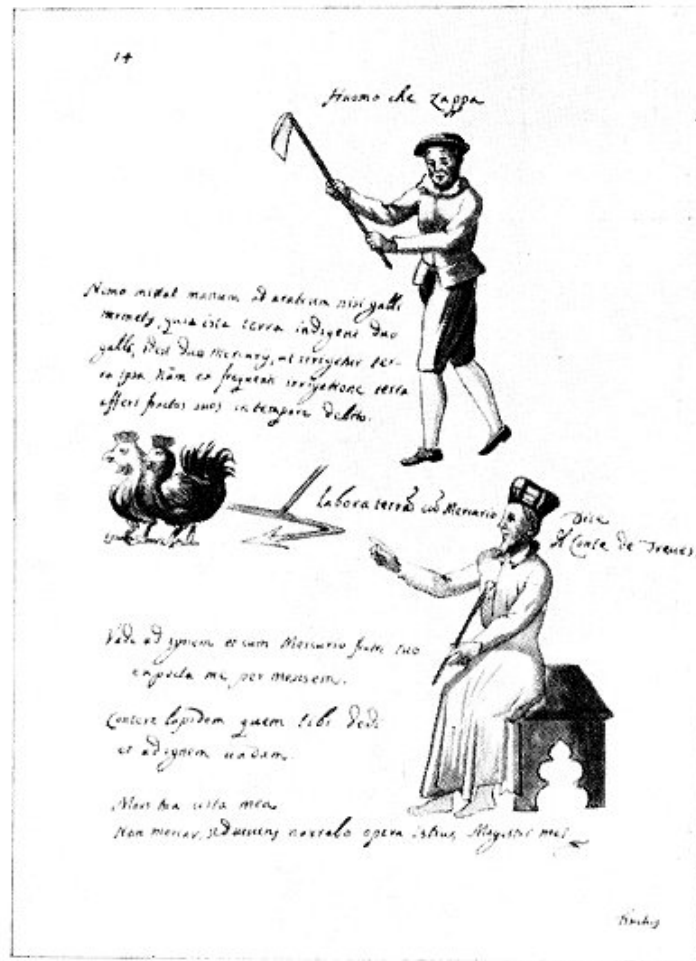 14
Huomo che zappa
Nemo mittat manum ad aratrum nisi galli
quia ista terra indiget duo
galli, idest duo Mercurij, ut irrigetur ter-
ra ipsa, Nam ex frequenti irrigatione terra
affert fructus suos in tempore debito.
Labora terrã cũ Mercurio
Dice
il Conte de Treues
Vade ad ignem et cum Mercurio fratre tuo
me per mensem.
Contere lapidem quem tibi dedi
et ad ignem uadam.
Mors tua uita mea
Non moriar, sed uiuens narrabo opera istius Magistri mei